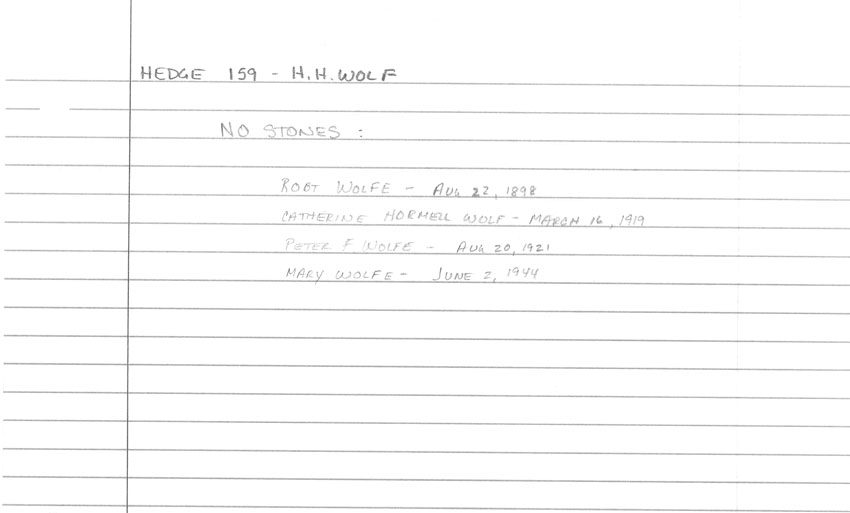 HEDGE 159 - H.H. WOLF
NO STONES :
ROBT WOLFE - AUG 22, 1898
CATHERINE HORMELL WOLF - MARCH 16, 1919
PETER F. WOLFE - AUG 20, 1921
MARY WOLFE - JUNE 2, 1944